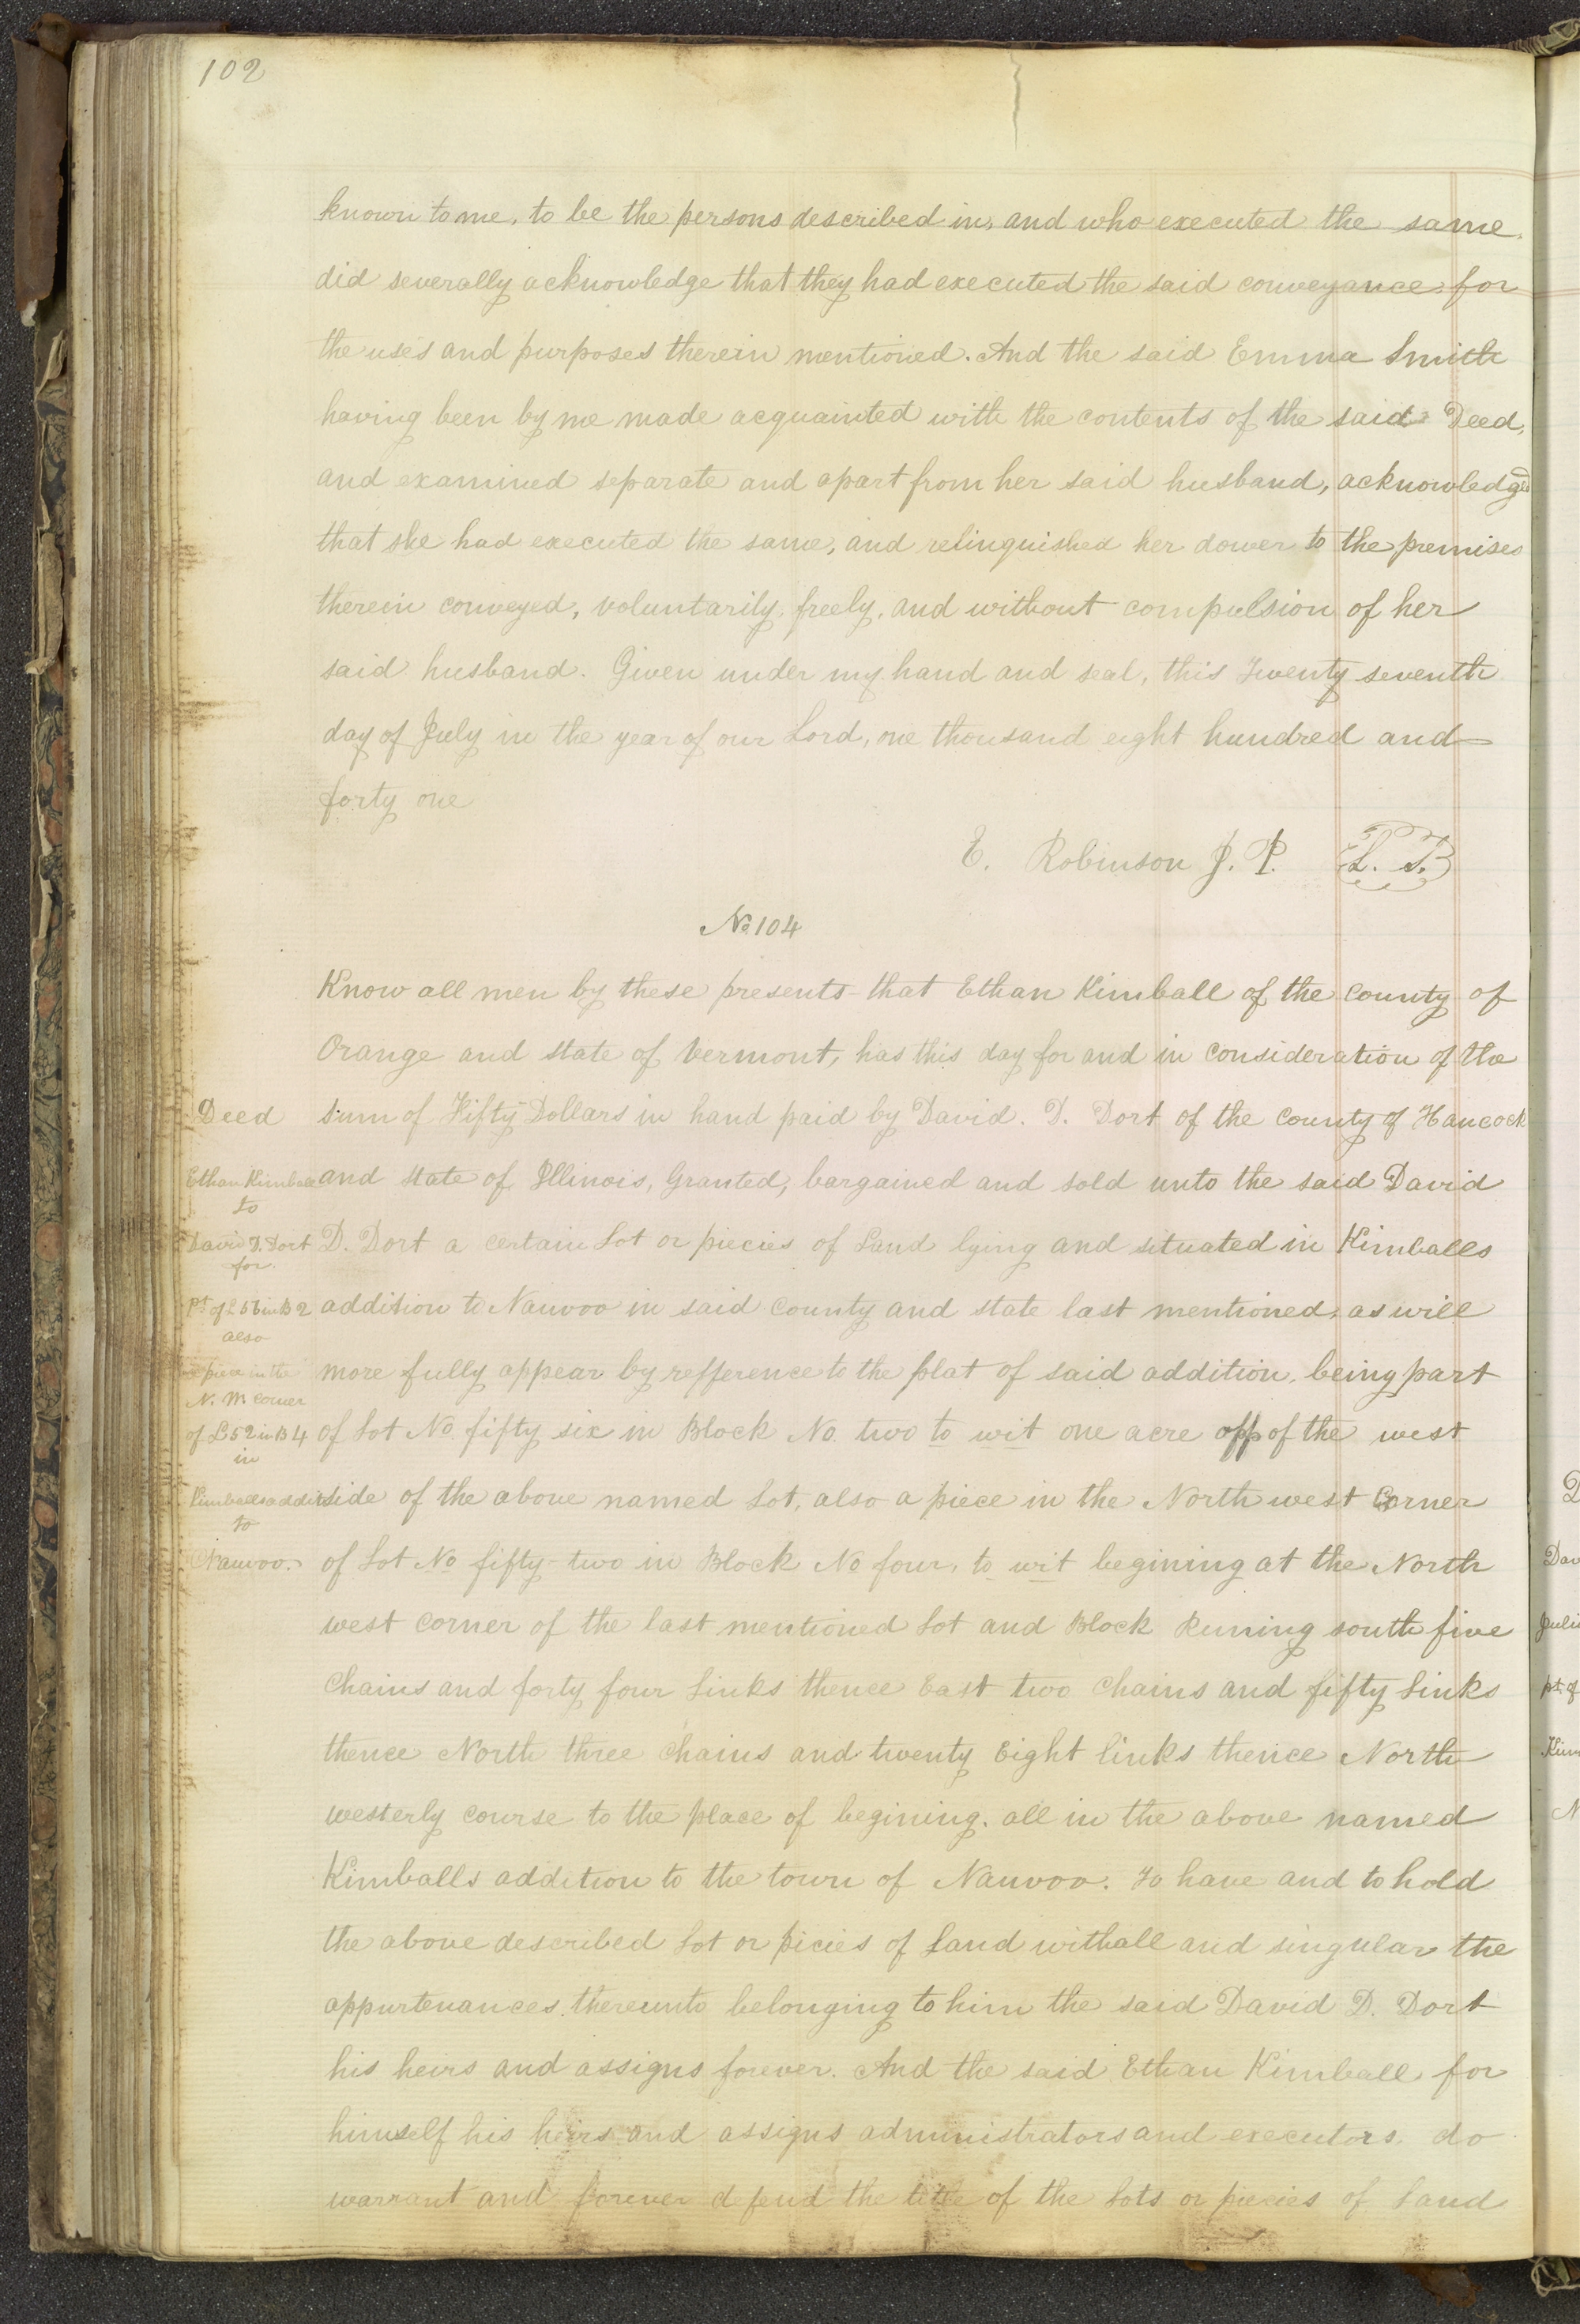 102
known to me, to be the persons described in, and who executed the same.
did severally acknowledge that they had executed the said conveyance for
the uses and purposes therein mentioned. And the said Emma Smith
having been by me made acquainted with the contents of the said Deed,
and examined separate and apart from her said husband, acknowledged
that she had executed the same, and relinquished her dower to the premises
therein conveyed, voluntarily, freely, and without compulsion of her
said husband. Given under my hand and seal, this Twenty seventh
day of July in the year of our Lord, one thousand eight hundred and
forty one
E. Robinson J. P. L. S.
No 104
Know all men by these presents that Ethan Kimball of the county of
Orange and state of Vermont, has this day for and in consideration of the
Deed
sum of Fifty Dollars in hand paid by David. D. Dort of the county of Hancock
Ethan Kimball
and state of Illinois, Granted, bargained and sold unto the said David
to
David D. Dort
D. Dort a certain Lot or piecies of Land lying and situated in Kimballs
for
Pt of L 56 in B 2
addition to Nauvoo in said county and state last mentioned, as will
also
piece in the
more fully appear by refference to the plat of said addition, being part
N. W. corner
of L 52 in B 4
of Lot No fifty six in Block No. two to wit one acre off of the west
in
Kimballs addit
side of the above named Lot, also a piece in the North west Corner
to
Nauvoo.
of Lot No fifty-two in Block No four, to wit begining at the North
west corner of the last mentioned Lot and Block Runing south five
Chains and forty four Links thence East two Chains and fifty Links
thence North three Chains and twenty Eight links thence North
westerly course to the place of begining. all in the above named
Kimballs addition to the town of Nauvoo. To have and to hold
the above described Lot or picies of Land withall and singular the
appurtenances thereunto belonging to him the said David D. Dort
his heirs and assigns forever. And the said Ethan Kimball for
himself his heirs and assigns administrators and executors, do
warrant and forever defend the title of the Lots or piecies of Land
D
Dav
Juli
pt. of
Kim
N